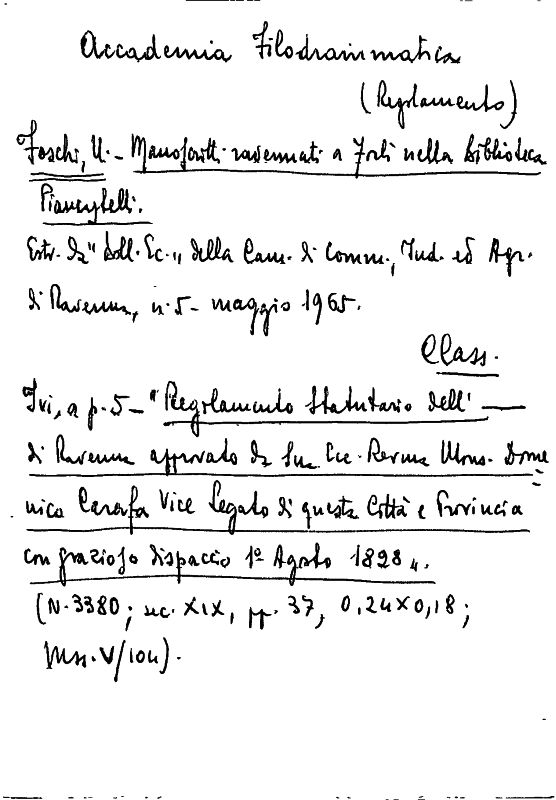 Accademia Filodrammatica
(Regolamento)
Foschi, U. - Manoscritti ravennati a Forlì nella biblioteca
Piancastelli.
Estr. da "Boll. Ec." della Cam. di Comm., Ind. ed Agr.
di Ravenna, n. 5 - maggio 1965.
Class.
Ivi, a p. 5 - "Regolamento Statutario dell' ——
di Ravenna approvato da Sua Ecc. Rev.ma Mons. Dome=
nico Carafa Vice Legato di questa Città e Provincia
con grazioso dispaccio 1º Agosto 1828".
(N. 3380; sec. XIX, pp. 37, 0,24 x 0,18;
Mss. V/104).